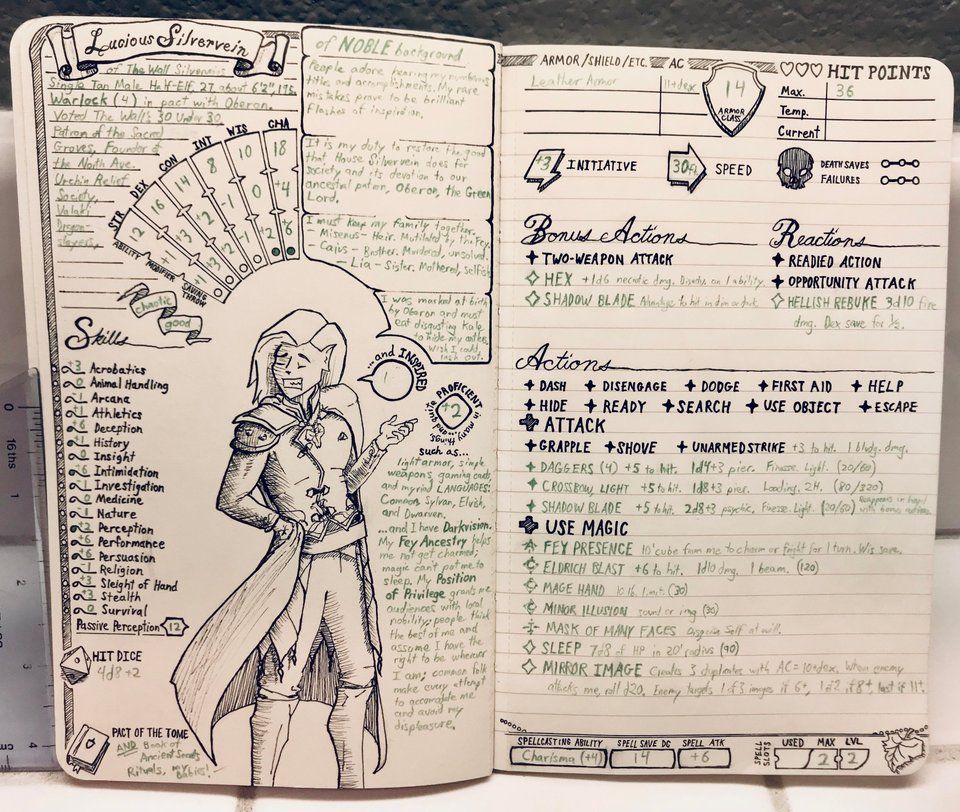 Lucious Silvervein
of The Wall Silverveins
Single Tan Male Half-Elf, 27, about 6'2", 175.
Warlock (4) in pact with Oberon.
Voted The Wall's 30 Under 30.
Patron of the Sacred
Groves, Founder of
the North Ave.
Urchin Relief
Society,
Valaki
Dragon-
slayers,
STR DEX CON INT WIS CHA
12 16 14 8 10 18
+1 +3 +2 -1 0 +4
+1 +3 +2 -1 +2 +6
ABILITY
MODIFIER
SAVING THROW
chaotic
good
of NOBLE background
People adore hearing my numerous
titles and accomplishments. My rare
mistakes prove to be brilliant
flashes of inspiration.
It is my duty to restore the good
that House Silvervein does for
society and its devotion to our
ancestral pater, Oberon, the Green
Lord.
I must keep my family together.
- Misenus - Heir. Mutilated by the Fey.
- Caius - Brother. Murdered, unsolved.
- Lia - Sister. Mothered, selfish
I was marked at birth
by Oberon and must
eat disgusting kale
to hide my antlers.
wish I could
lash out.
...and INSPIRED
Skills
+3 Acrobatics
0 Animal Handling
-1 Arcana
+1 Athletics
+6 Deception
+1 History
0 Insight
+6 Intimidation
-1 Investigation
0 Medicine
-1 Nature
+2 Perception
+6 Performance
+6 Persuasion
-1 Religion
+3 Sleight of Hand
+3 Stealth
0 Survival
Passive Perception 12
HIT DICE
4d8+2
PACT OF THE TOME
AND Book of
Ancient Secrets
Rituals, my babies!
...and quite PROFICIENT in many things,
+2
such as...
light armor, simple
weapons, gaming cards,
and myriad LANGUAGES:
Common, Sylvan, Elvish,
and Dwarven.
...and I have Darkvision.
My Fey Ancestry helps
me not get charmed;
magic can't put me to
sleep. My Position
of Privilege grants me
audiences with local
nobility; people think
the best of me and
assume I have the
right to be wherever
I am; common folk
make every attempt
to accomodate me
and avoid my
displeasure.
ARMOR/SHIELD/ETC. AC
Leather Armor 11+dex
14
ARMOR
CLASS
HIT POINTS
Max. 36
Temp.
Current
+3 INITIATIVE
30ft. SPEED
DEATH SAVES
FAILURES
Bonus Actions
TWO-WEAPON ATTACK
HEX +1d6 necrotic dmg. Disadv. on 1 ability.
SHADOW BLADE Advantage to hit in dim or dark
Reactions
READIED ACTION
OPPORTUNITY ATTACK
HELLISH REBUKE 3d10 fire
dmg. Dex save for ½.
Actions
DASH DISENGAGE DODGE FIRST AID HELP
HIDE READY SEARCH USE OBJECT ESCAPE
ATTACK
GRAPPLE SHOVE UNARMED STRIKE +3 to hit. 1 bludg. dmg.
DAGGERS (4) +5 to hit. 1d4+3 pier. Finesse. Light. (20/60)
CROSSBOW, LIGHT +5 to hit. 1d8+3 pier. Loading. 2H. (80/320)
SHADOW BLADE +5 to hit. 2d8+3 psychic, Finesse. Light. (20/60) Reappears in hand
with bonus action.
USE MAGIC
FEY PRESENCE 10' cube from me to charm or fright for 1 turn. Wis save.
ELDRICH BLAST +6 to hit. 1d10 dmg. 1 beam. (120)
MAGE HAND 10 lb. limit. (30)
MINOR ILLUSION sound or img (30)
MASK OF MANY FACES Disguise Self at will.
SLEEP 7d8 of HP in 20' radius (90)
MIRROR IMAGE Creates 3 duplicates with AC = 10+dex. When enemy
attacks me, roll d20. Enemy targets 1 of 3 images if 6+, 1 of 2 if 8+, last if 11+.
SPELLCASTING ABILITY SPELL SAVE DC SPELL ATK
Charisma (+4) 14 +6
SPELL SLOTS
USED MAX LVL
2 2
0
16ths
1
2
3
cm
4